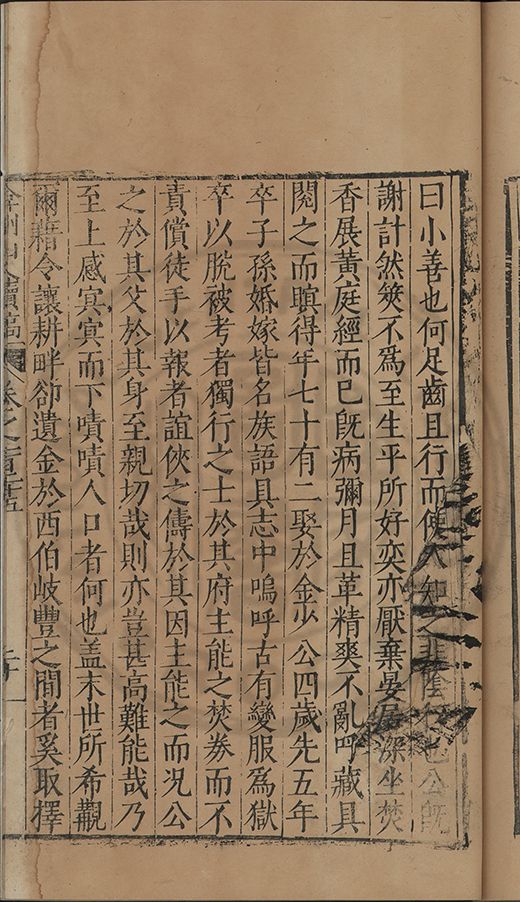 曰小善也何足齒且行而使人知之非陰德也公既
謝計然筴不爲至生平所好奕亦厭棄晏居深坐焚
香展黃庭經而已既病彌月且革精爽不亂呼藏具
閱之而瞑得年七十有二娶於金少公四歲先五年
卒子孫婚嫁皆名族語具志中嗚呼古有變服爲獄
卒以脫被考者獨行之士於其府主能之焚券而不
責償徒手以報者誼俠之儔於其因主能之而况公
之於其父於其身至親切哉則亦豈甚高難能哉乃
至上感㝠㝠而下嘖嘖人口者何也盖末世所希覯
爾藉令讓耕畔卻遺金於西伯岐豐之間者奚取擇
弇州山人續稿 卷之一百十五